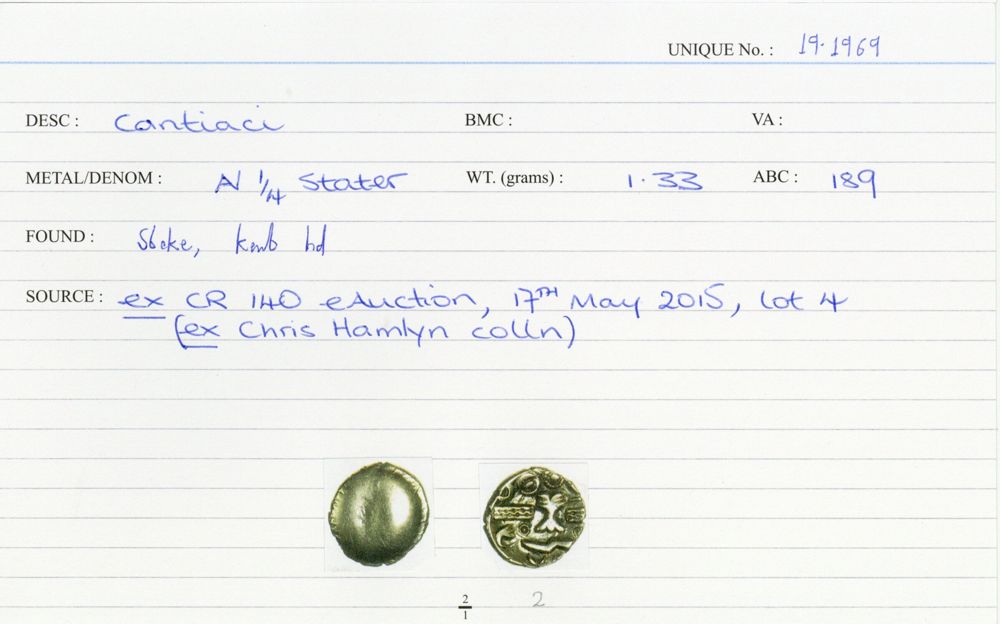 UNIQUE No. : 19.1969
DESC : Cantiaci BMC : VA :
METAL/DENOM : AV 1/4 Stater WT. (grams) : 1.33 ABC : 189
FOUND : Stoke, Kent hd
SOURCE : ex CR 140 eAuction, 17TH May 2015, lot 4
(ex Chris Hamlyn colln)
2/1 2